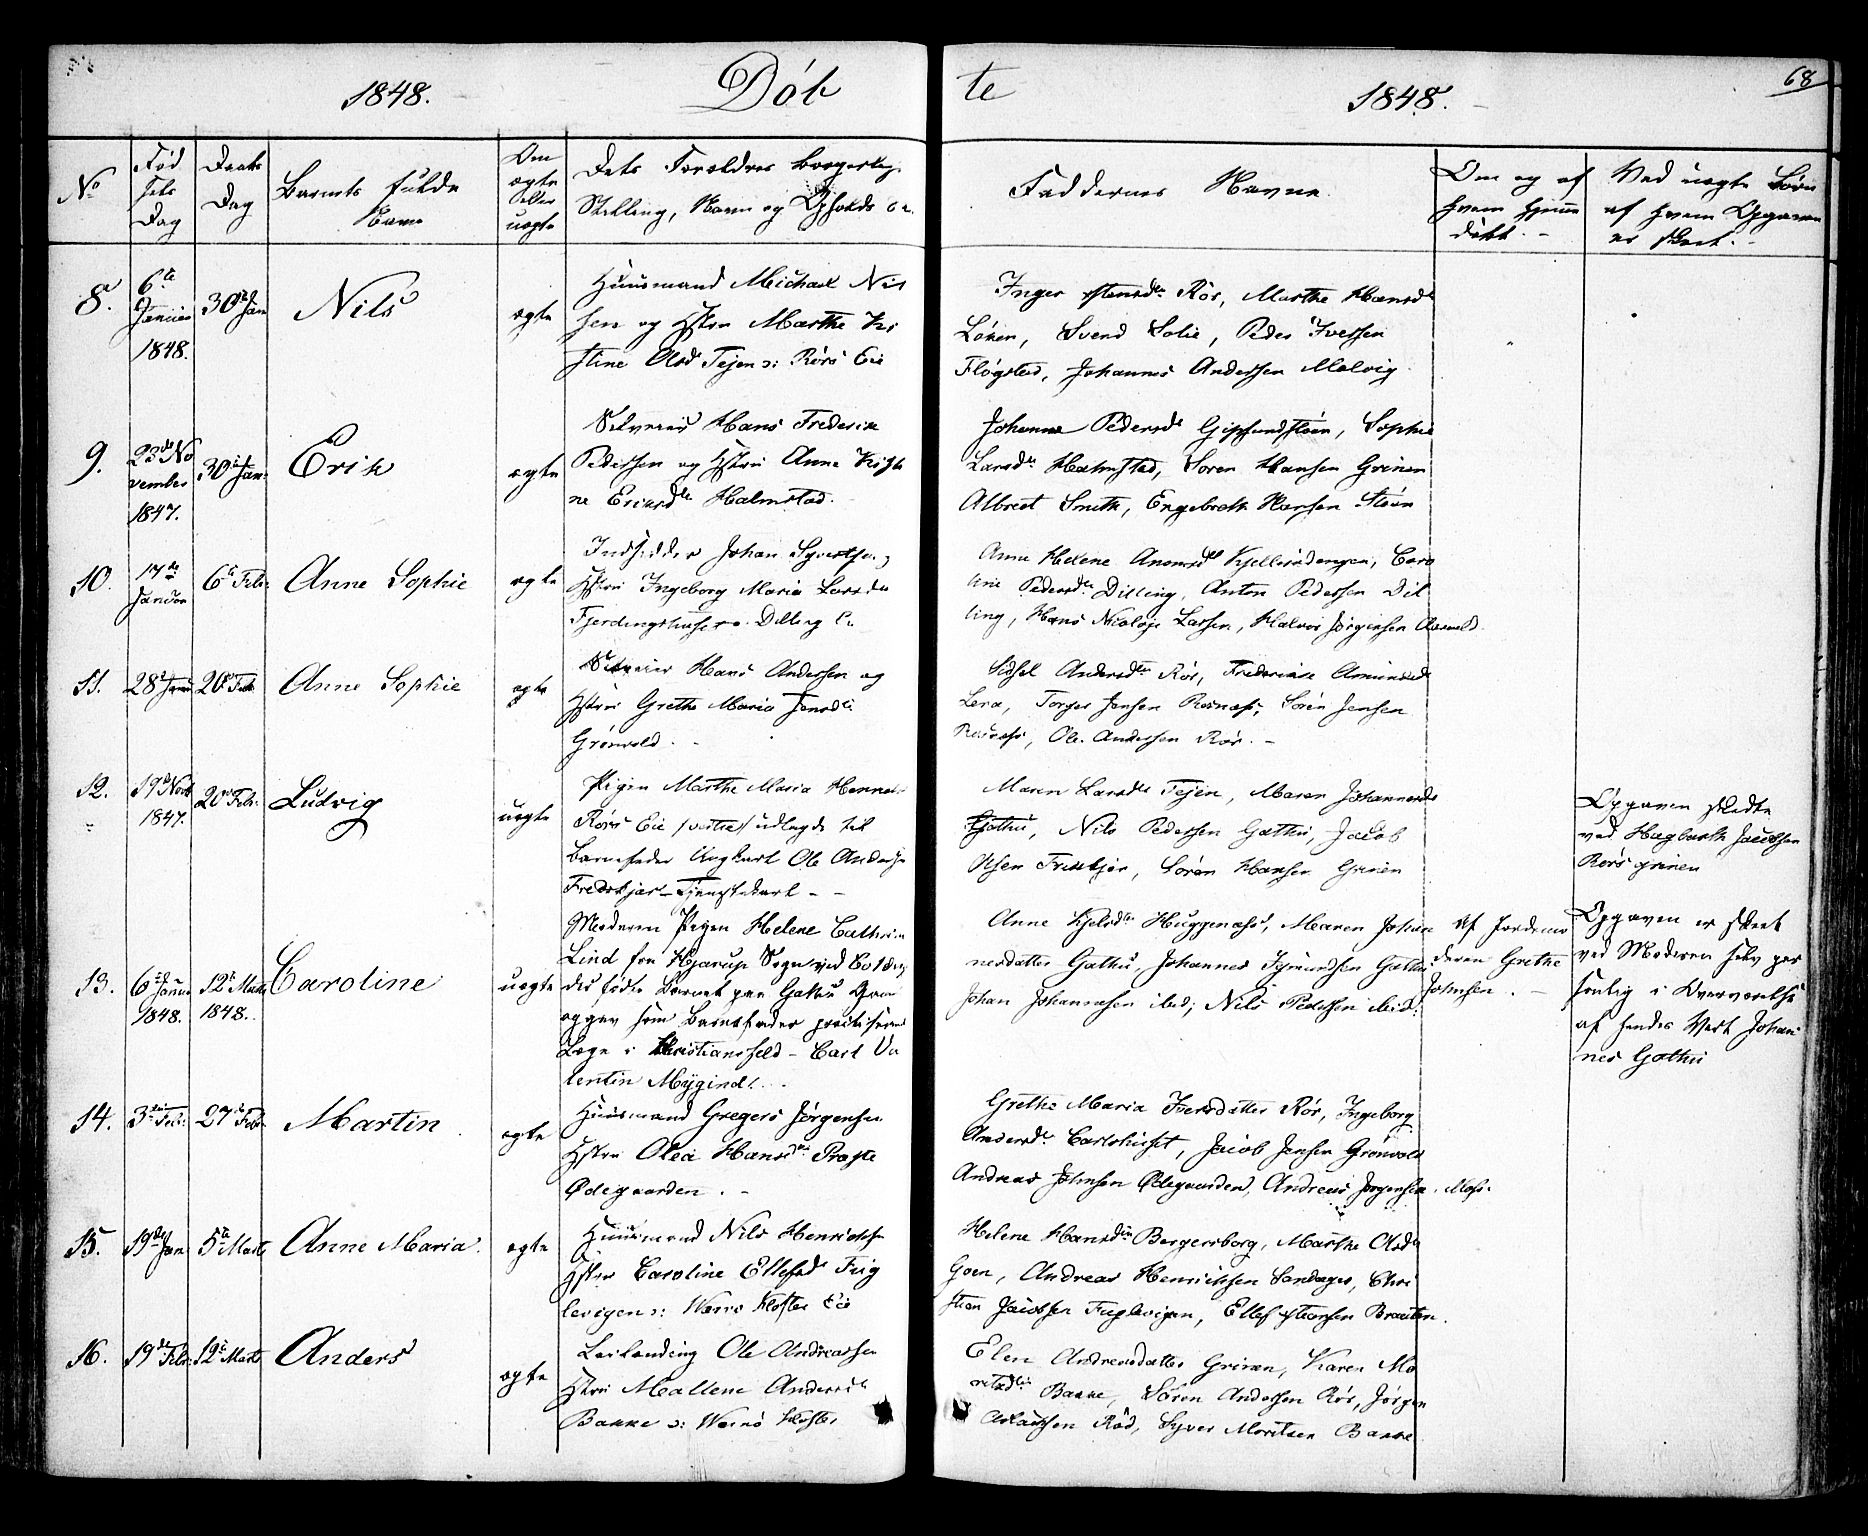 1848.
Döb
te
1848.
68
No
Fød
sels
Dag
Daabs
Dag
Barnets fulde
Navn
Om
ægte
eller
uægte
Dets Forældres borgerlige
Stilling, Navn og Opholds
Faddernes Navne
Om og af
hvem hjemme
döbt. -
Ved uægte Börn
af hvem Opgaven
er skeet. -
8.
6te
Januar
1848.
30te Jan
Nils
ægte
Huusmand Michael Nil
sen og Hstru Marthe Kri
stine Olsd Tejen o: Rörs Eie
Inger Rör, Marthe Hansdr
Löken, Svend Solie, Peder Ivessen
Flögstad, Johannes Anderssen Molvig
9.
23de No
vember
1847.
30te Jan.
Erik
ægte
Selveier Hans Frederik
Pederssen og Hstru Anne Kirsti
ne Ericsdtr Halmstad.
Johanne Pedersdr Gipsundstöen, Sophie
Larsdr Halmstad, Sören Hansen Grinen
Albret Smith, Engebreth Hansen Stöen
10.
17de
Januar
6te Febr.
Anne Sophie
ægte
Indsidder Johan Syvertsen,
Hstru Ingeborg Maria Larsdtr
Fjerdingshusene Dilling E.
Anne Helene Kjellerödengen, Caro
line Pedersdtr Dilling, Anton Pederssen Dil
ling, Hans Nicolaje Larssen, Halvor Jörgensen
11.
28de Janu
20de Feb.
Anne Sophie
ægte
Selveier Hans Anderssen og
Hstru Grethe Maria Jensdtr
Grönvold. -
Sidsel Andersdtr Rör, Frederikke Amundsd
Lera, Torger Jensen Rosnæs, Sören Jensen
Rosnæs, Ole Anderssen Rör. -
12.
19de Novb
1847.
20de Febr.
Ludvig
uægte
Pigen Marthe Maria
Rörs Eie /vestre/ udlagde til
Barnefader Ungkarl Ole Anderssen
Fredskjær - Tjenestekarl - -
Maren Larsdtr Tejen, Maren Johannesdr
Gathu, Nils Pederssen Gathu, Jacob
Olsen Friskjær, Sören Hansen Grinen
Opgaven skedte
ved Hagbarth Jacobsen
Rörsgrinen
13.
6te Januar
1848.
12te Marts
1848.
Caroline
uægte
Moderen Pigen Helene Cathrine
Lind fra Hjarup Sogn ved Colding
der födte Barnet paa Gathu
opgav som Barnefader practiserende
Læge i Christiansfeld - Carl Va
lentin Mygind. -
Anne Kjelsdtr Huggenæs, Maren Johan
nesdatter Gathu, Johannes Sigmundsen Gathu
Johan Johannesen ibid; Nils Pederssen ibid.
Af Jordemo
deren Grethe
Johnsen. -
Opgaven er skeet
ved Moderen selv per
sonlig i Overværelse
af hendes Vert Johan
nes Gathu
14.
3die Feb.
27de Febr
Martin
ægte
Huusmand Gregers Jörgensen
Hstru Olea Hansdtr Preste
Ödegaarden. -
Grethe Maria Iversdatter Rör, Ingeborg
Andersdr Carlshuset, Jacob Jensen Grönvold
Andreas Johnsen Ödegaarden, Andreas Jörgensen. Moss.
15.
19de Jan
5te Marts
Anne Maria.
ægte
Huusmand Nils Henrichsen
Hstru Caroline Ellefsdr Fug
levigen o: Wernö Kloster Eie
Helene Hansdtr Bergersborg, Marthe Olsdtr
Goen, Andreas Henrichsen Sandager, Chri
stian Jacobsen Fuglevigen, Ellef Braaten.
16.
19de Febr.
12te Marts
Anders
ægte
Leilænding Ole Andreassen
Hstru Mallene Andersdtr
Bakke o: Wernö Kloster
Elen Andreasdatter Grinen, Karen Mo
ritsdtr Bakke, Sören Anderssen Rör, Jörgen
Röd, Syver Moritsen Bakke